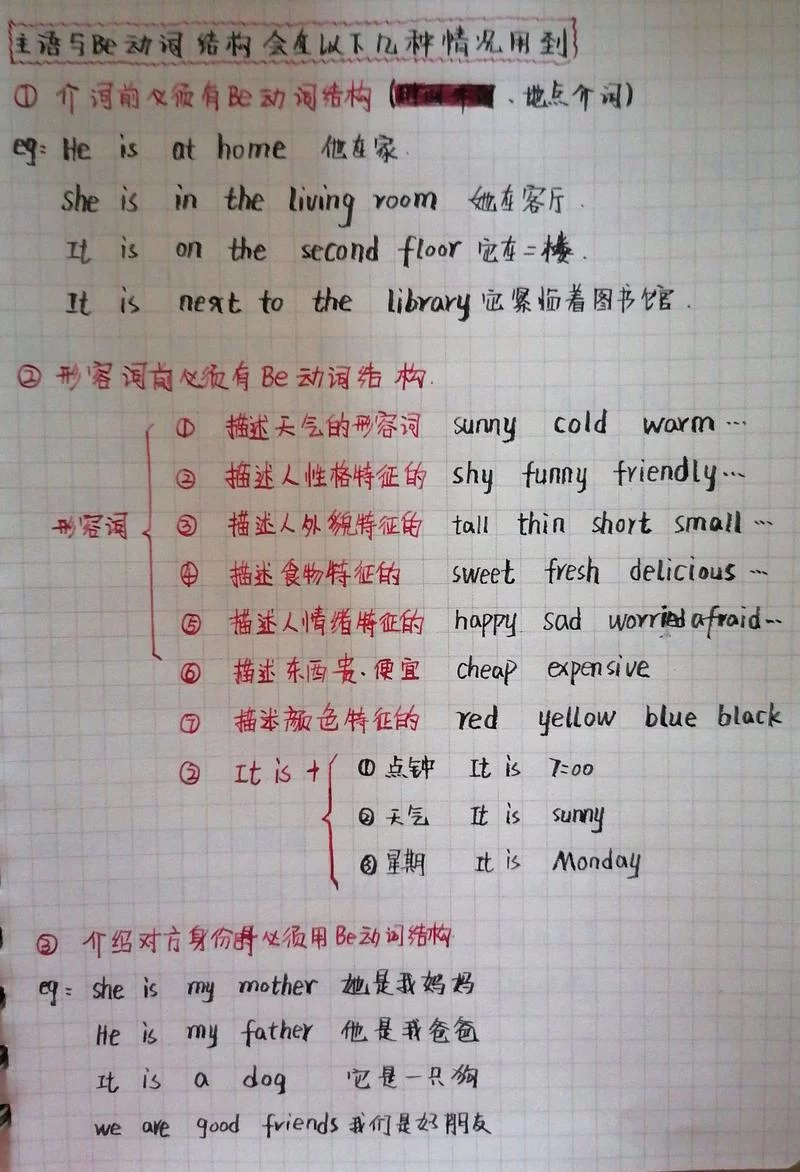 主语与Be动词结构会在以下几种情况用到
① 介词前必须有Be动词结构 ( 、地点介词)
eg: He is at home 他在家.
She is in the living room 她在客厅.
It is on the second floor 它在二楼.
It is next to the library 它紧临着图书馆.
② 形容词前必须有Be动词结构.
① 描述天气的形容词 sunny cold warm …
② 描述人性格特征的 shy funny friendly…
形容词 ③ 描述人外貌特征的 tall thin short small …
④ 描述食物特征的 sweet fresh delicious …
⑤ 描述人情绪特征的 happy sad worried afraid…
⑥ 描述东西贵、便宜 cheap expensive
⑦ 描述颜色特征的 red yellow blue black
② It is + ① 点钟 It is 7:00
② 天气 It is sunny
③ 星期 It is Monday
③ 介绍对方身份时必须用Be动词结构
eg: she is my mother 她是我妈妈
He is my father 他是我爸爸
It is a dog 它是一只狗
we are good friends 我们是好朋友